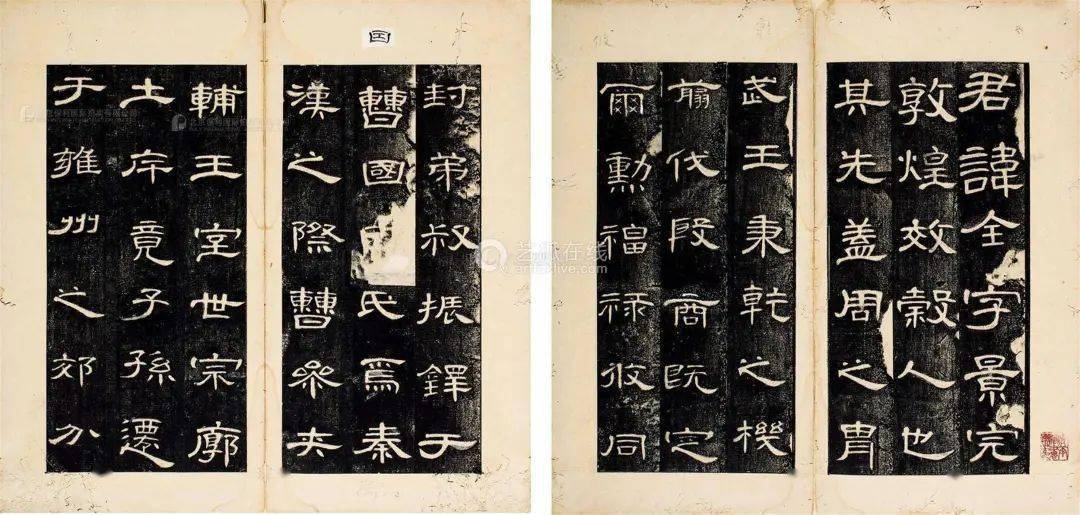 君諱全字景完
敦煌效穀人也
其先蓋周之胄
武王秉乾之機
翦伐殷商既定
爾勳福祿攸同
封弟叔振鐸于
曹國因氏焉秦
漢之際曹參夾
輔王室世宗廓
土斥竟子孫遷
于雍州之郊分
艺狐在线
artfoxlive.com